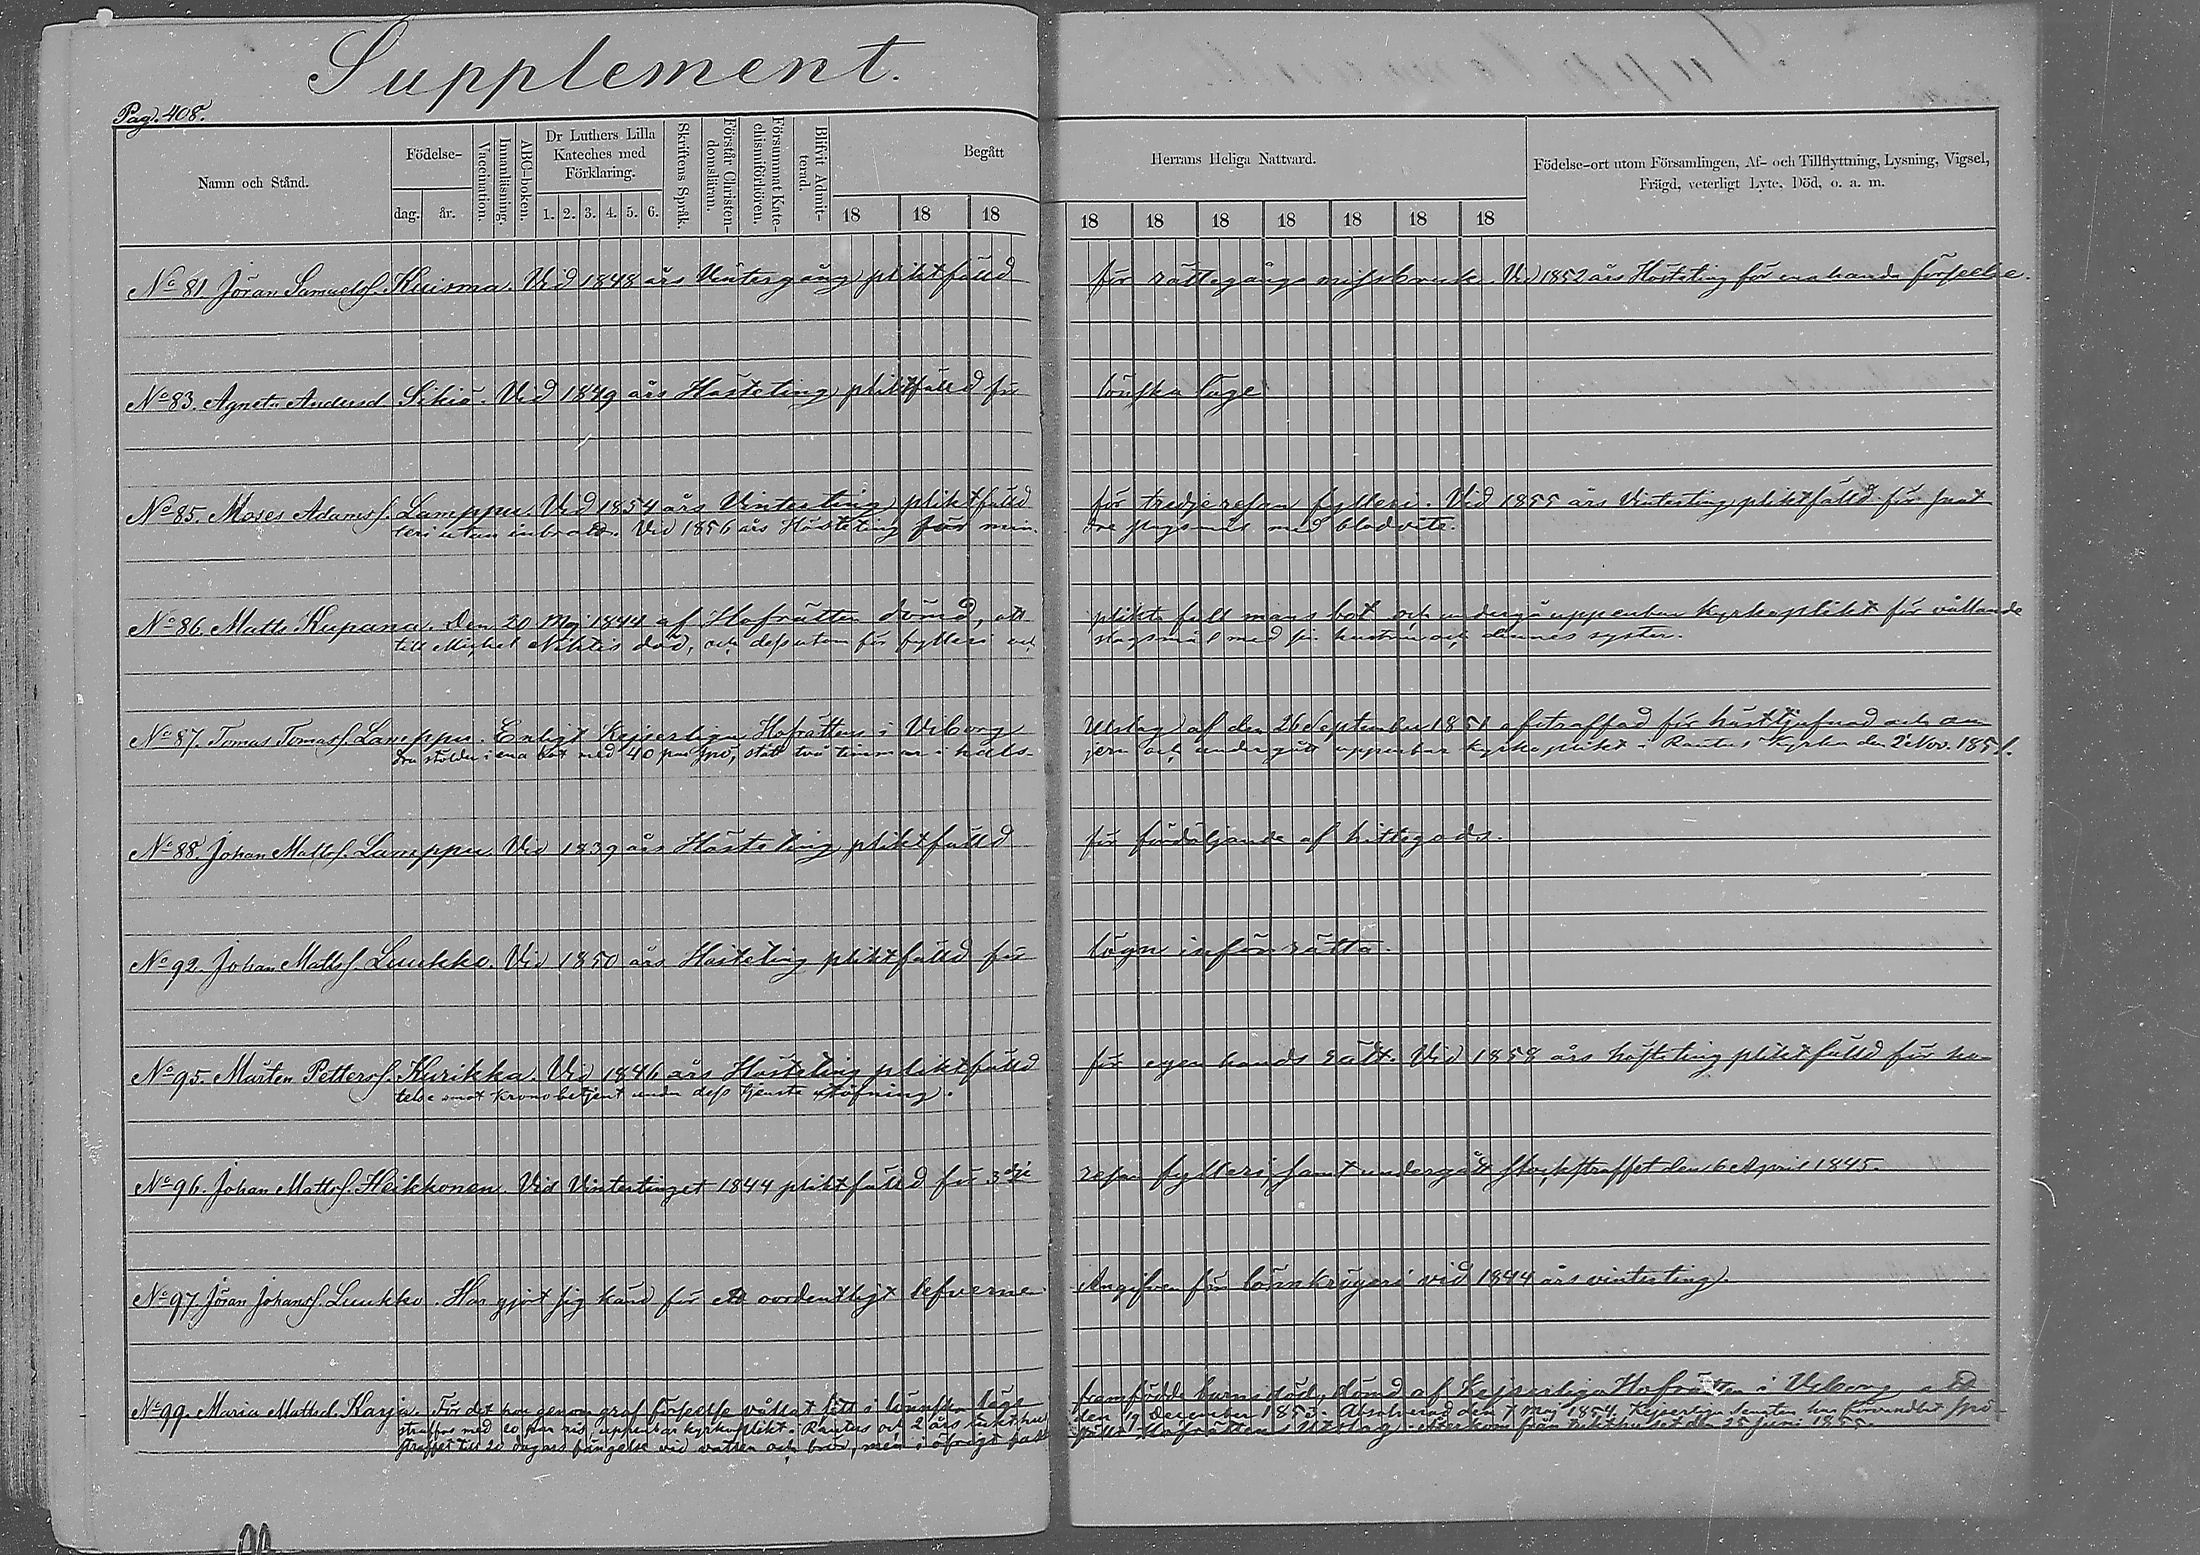 Supplement.
Pag. 408.
Namn och Stånd.
Födelse-
dag.
år.
Vaccination.
Innanläsning.
ABC-boken.
Dr Luthers Lilla
Kateches med
Förklaring.
1. 2. 3. 4. 5. 6.
Skriftens Språk.
Förstår Christen-
domsläran.
Försummat Kate-
chismiförhören.
Blifvit Admit-
terad.
Begått
18 18 18
Herrans Heliga Nattvard.
18 18 18 18 18 18 18
Födelse-ort utom Församlingen, Af- och Tillflyttning, Lysning, Vigsel,
Frägd, veterligt Lyte, Död, o. a. m.
No 81. Jöran Samuelss. Kuisma. Vid 1848 års Vintergång pliktfälld för rättegångs missbruk. Vid 1852 års Hösteting för enahanda förseelse.
No 83. Agneta Andersd Sikiö. Vid 1849 års Hösteting pliktfälld för lönska läge
No 85. Moses Adamss. Lamppu. Vid 1854 års Vinterting pliktfälld för tredje resan fylleri. Vid 1855 års Vinterting pliktfälld för snat
teri utan inbrott. Vid 1856 års Hösteting för min dre slagsmål med blodvite.
No 86. Matts Kupana. Den 20 Maj 1844 af Hofrätten dömd, att plikta full mans bot och undergå uppenbar kyrkoplikt för vållande
till Michel Nihtis död, och dessutom för fylleri och slagsmål med sin hustru och dennes syster.
No 87. Tomas Tomass. Lamppu. Enligt Kejserliga Hofrättens i Viborg Utslag af den 26 September 1851 afstraffad för hästtjufnad och an
dra stölder i ena bot med 40 par spö, stått två timmar i hals- jern och undergått uppenbar kyrkoplikt i Rautus Kyrka den 2 Nov. 1851.
No 88. Johan Mattss. Lamppu. Vid 1839 års Hösteting pliktfälld för fördöljande af hittegods.
No 92. Johan Mattss. Luukko. Vid 1850 års Hösteting pliktfälld för lögn inför rätta.
No 95. Mårten Petterss. Kurikka. Vid 1846 års Hösteting pliktfälld för egenhands rätt. Vid 1858 års hösteting pliktfälld för ho-
telse emot Kronobetjent under dess tjensteutöfning.
No 96. Johan Mattss. Heikkonen. Vid Vintertinget 1844 pliktfälld för 3dje resan fylleri, samt undergått stockstraffet den 6 April 1845.
No 97. Jöran Johanss. Luukko. Har gjort sig känd för ett oordentligt lefverne. Angifven för lönnkrögeri vid 1844 års vinterting.
No 99. Maria Mattsd. Karja. För det hon genom grof förseelse vållat sitt i lönska läge framfödde barns död, dömd af Kejserliga Hofrätten i Viborg att
straffas med 20 par ris, uppenbar kyrkoplikt i Rautus och 2 års tukthus den 19 December 1853. Absolverad den 7 Maj 1854. Kejserliga Senaten har förvandlat spö-
straffet till 20 dagars fängelse vid vatten och bröd, men i öfrigt Hofrättens Utslag. Återkom från tukthuset den 25 Juni 1855.